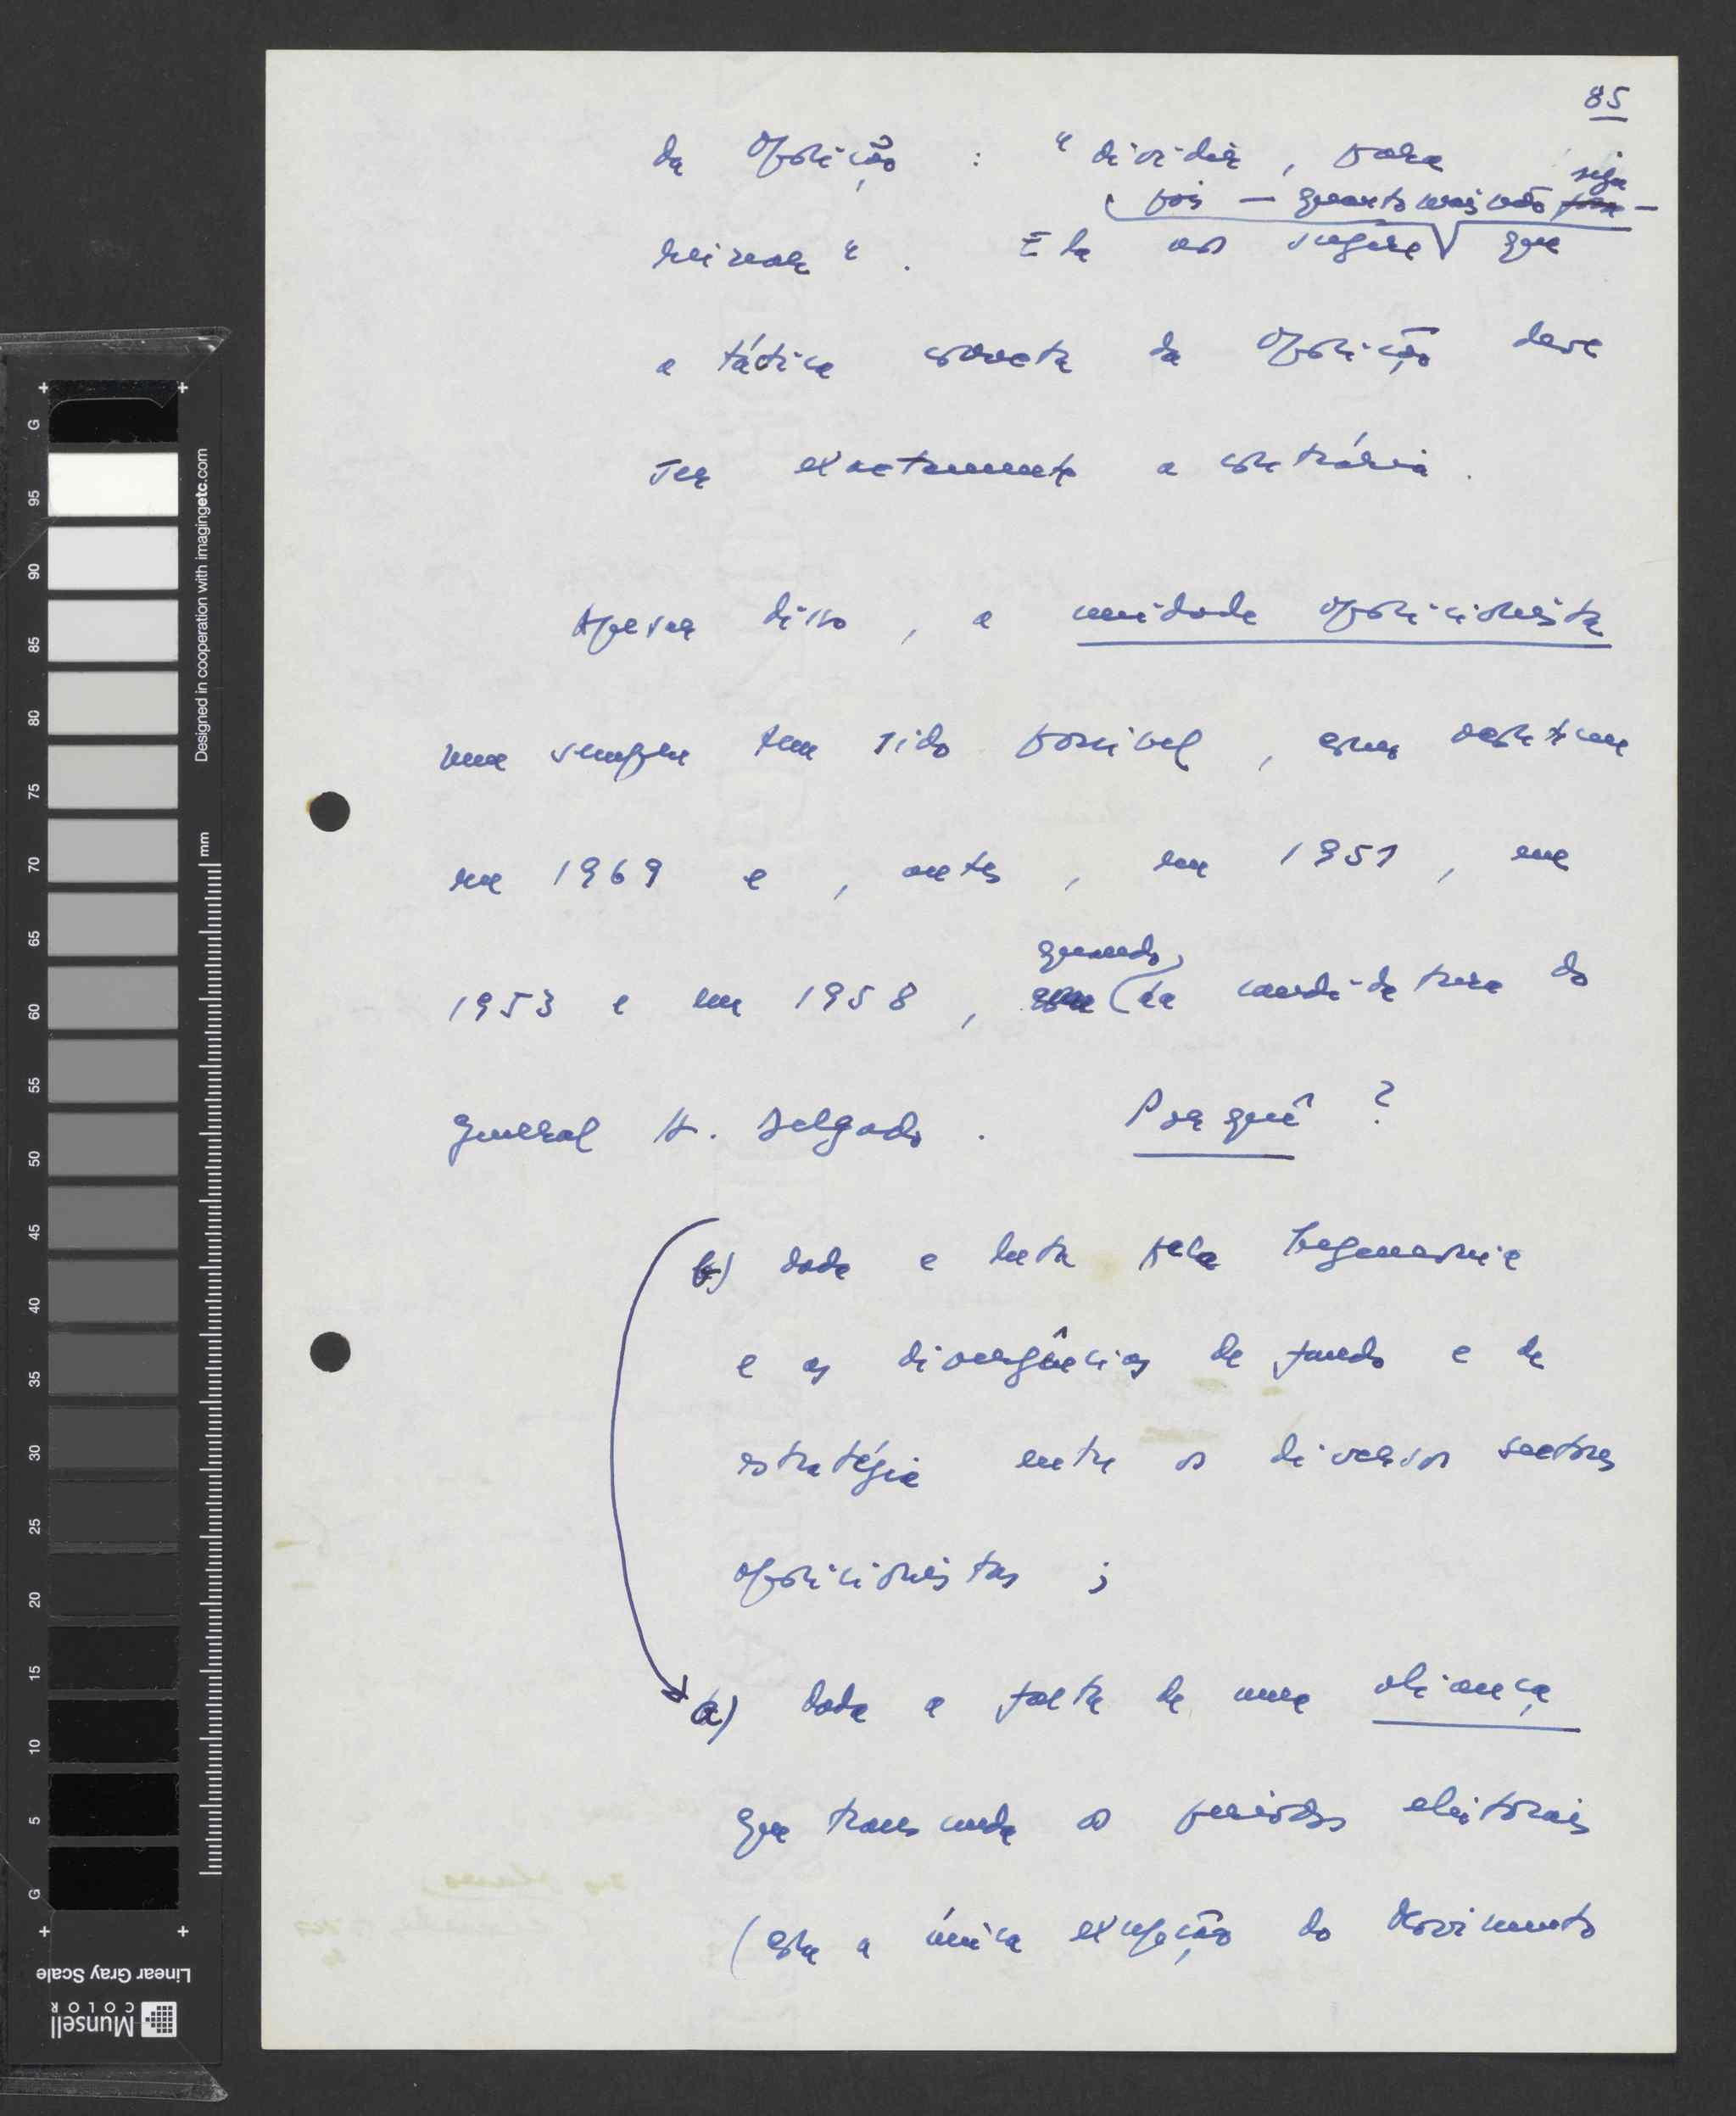 85
da Oposição : "dividir, para
pois — quanto mais não seja fora —
reinar". Ela nos sugere que
a táctica correcta da Oposição deve
ser exactamente a contrária.
Apesar disso, a unidade oposicionista
nem sempre tem sido possível, como
em 1969 e, antes, em 1951, em
quando
1953 e em 1958, com da candidatura do
general H. Delgado. Porquê ?
b) dada a luta pela hegemonia
e as divergências de fundo e de
estratégia entre os diversos sectores
oposicionistas ;
a) dada a falta de uma aliança
que transcenda os períodos eleitorais
(com a única excepção do Movimento
G 95 90 85 80 75 70 65 60 55 50 45 40 35 30 25 20 15 10 5 G
Designed in cooperation with imagingetc.com
mm
Linear Gray Scale
Munsell
COLOR